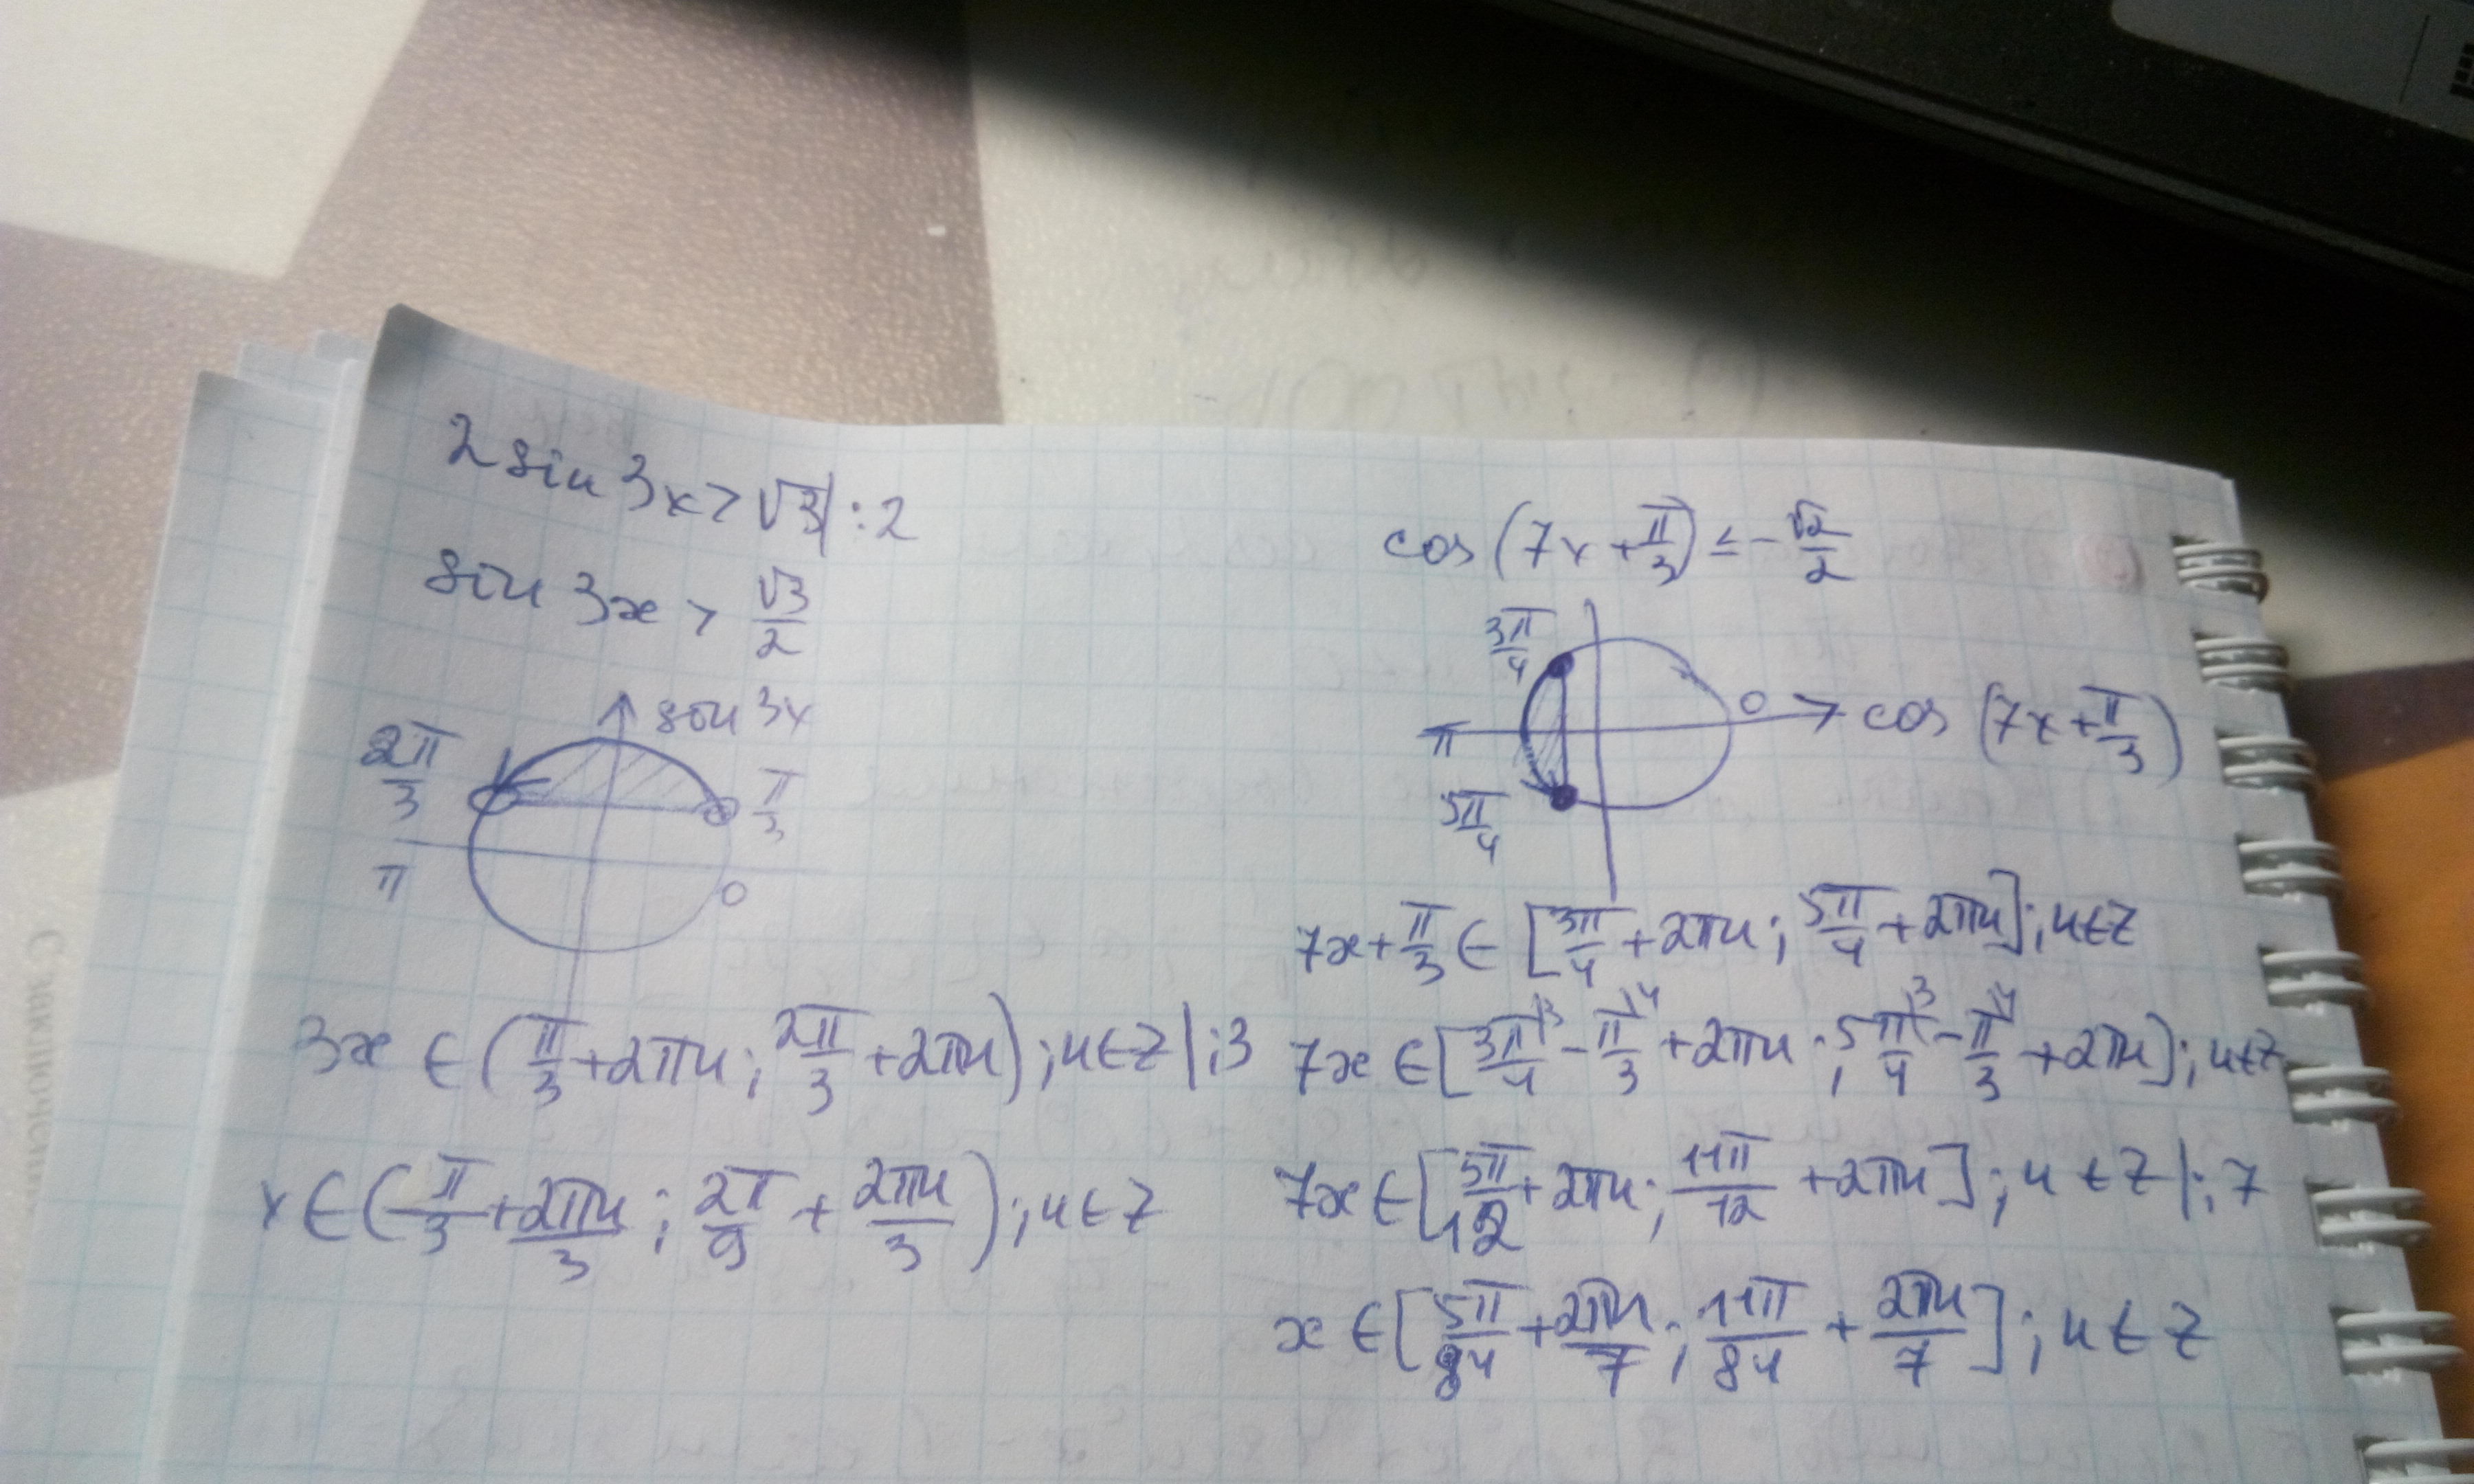 2 sin 3x > √3 | : 2
sin 3x > √3/2
sin 3x
2π/3
π/3
π
0
3x ∈ (π/3 + 2πn ; 2π/3 + 2πn) ; n ∈ Z | : 3
x ∈ (π/3 + 2πn/3 ; 2π/9 + 2πn/3) ; n ∈ Z
cos (7x + π/3) ≤ - √2/2
3π/4
0
π
cos (7x + π/3)
5π/4
7x + π/3 ∈ [3π/4 + 2πn ; 5π/4 + 2πn] ; n ∈ Z
7x ∈ [3π/4 |3 - π/3 |4 + 2πn ; 5π/4 |3 - π/3 |4 + 2πn] ; n ∈ Z
7x ∈ [5π/12 + 2πn ; 11π/12 + 2πn] ; n ∈ Z | : 7
x ∈ [5π/84 + 2πn/7 ; 11π/84 + 2πn/7] ; n ∈ Z